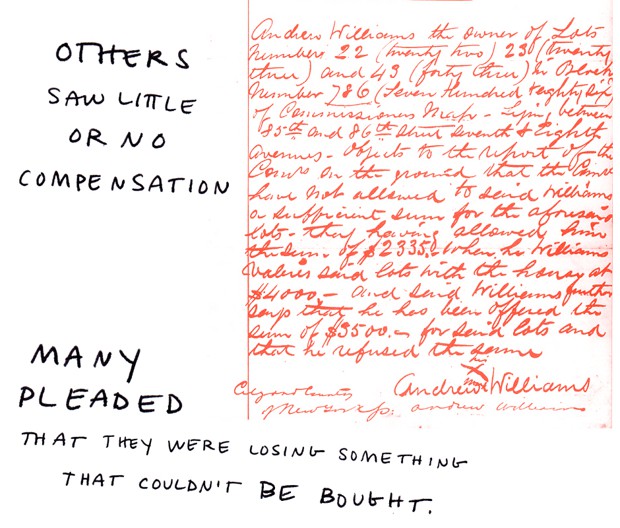 OTHERS
SAW LITTLE
OR NO
COMPENSATION
Andrew Williams the owner of Lots
Number 22 (twenty two) 23 (twenty
three) and 43 (forty three) in Block
Number 786 (Seven Hundred & eighty six)
of Commissioners Map - Lying between
85th and 86th Street Seventh & Eighth
avenues - Objects to the report of the
Comrs on the ground that the Comrs
have not allowed to said Williams
a sufficient sum for the aforesaid
lots - they having allowed him
the sum of $2335. When he Williams
values said lots with the house at
$4000 - and said Williams further
says that he has been offered the
sum of $3500 - for said lots and
that he refused the same
his
Andrew X Williams
City and County
of New York ss: Andrew Williams
MANY
PLEADED
THAT THEY WERE LOSING SOMETHING
THAT COULDN'T BE BOUGHT.